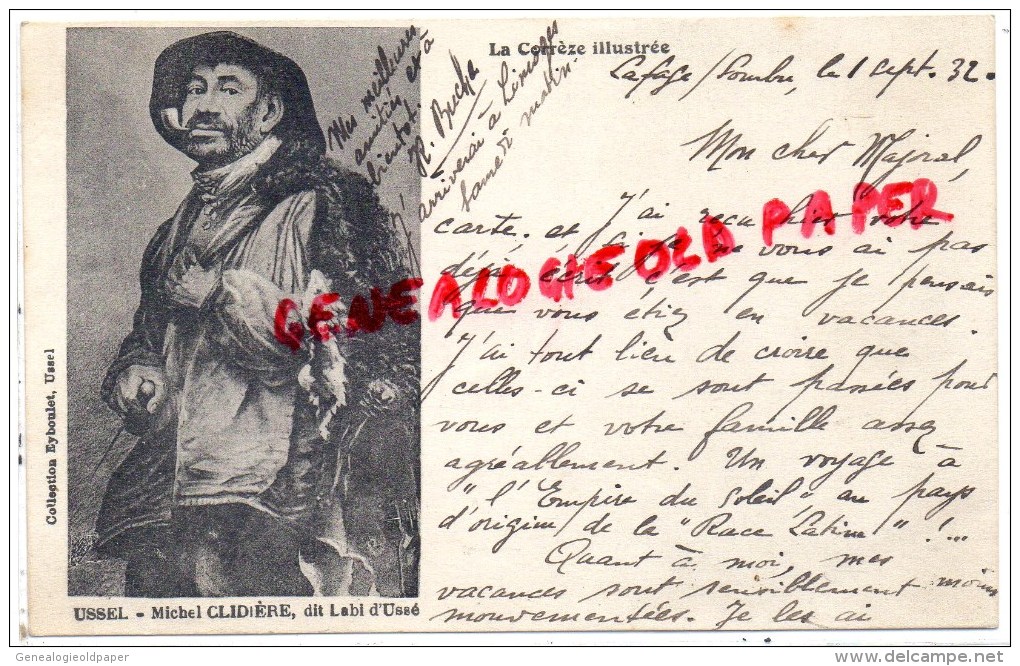 La Corrèze illustrée
Lafage/Sombre, le 1 Sept. 32.
Mon cher Majoral,
J'ai reçu hier votre
carte. et si je ne vous ai pas
déjà écrit c'est que je pensais
que vous étiez en vacances.
J'ai tout lieu de croire que
celles-ci se sont passées pour
vous et votre famille assez
agréablement. Un voyage à
"l'Empire du Soleil" au pays
d'origine de la "Race Latine"!...
Quant à moi, mes
vacances sont sensiblement moins
mouvementées. Je les ai
Mes meilleures
amitiés et à
bientôt.
J'arriverai à Limoges
samedi matin.
GENEALOGHEOLD PAPER
Collection Eyboulet, Ussel
USSEL - Michel CLIDIÈRE, dit Labi d'Ussé
Genealogieoldpaper
delcampe.net